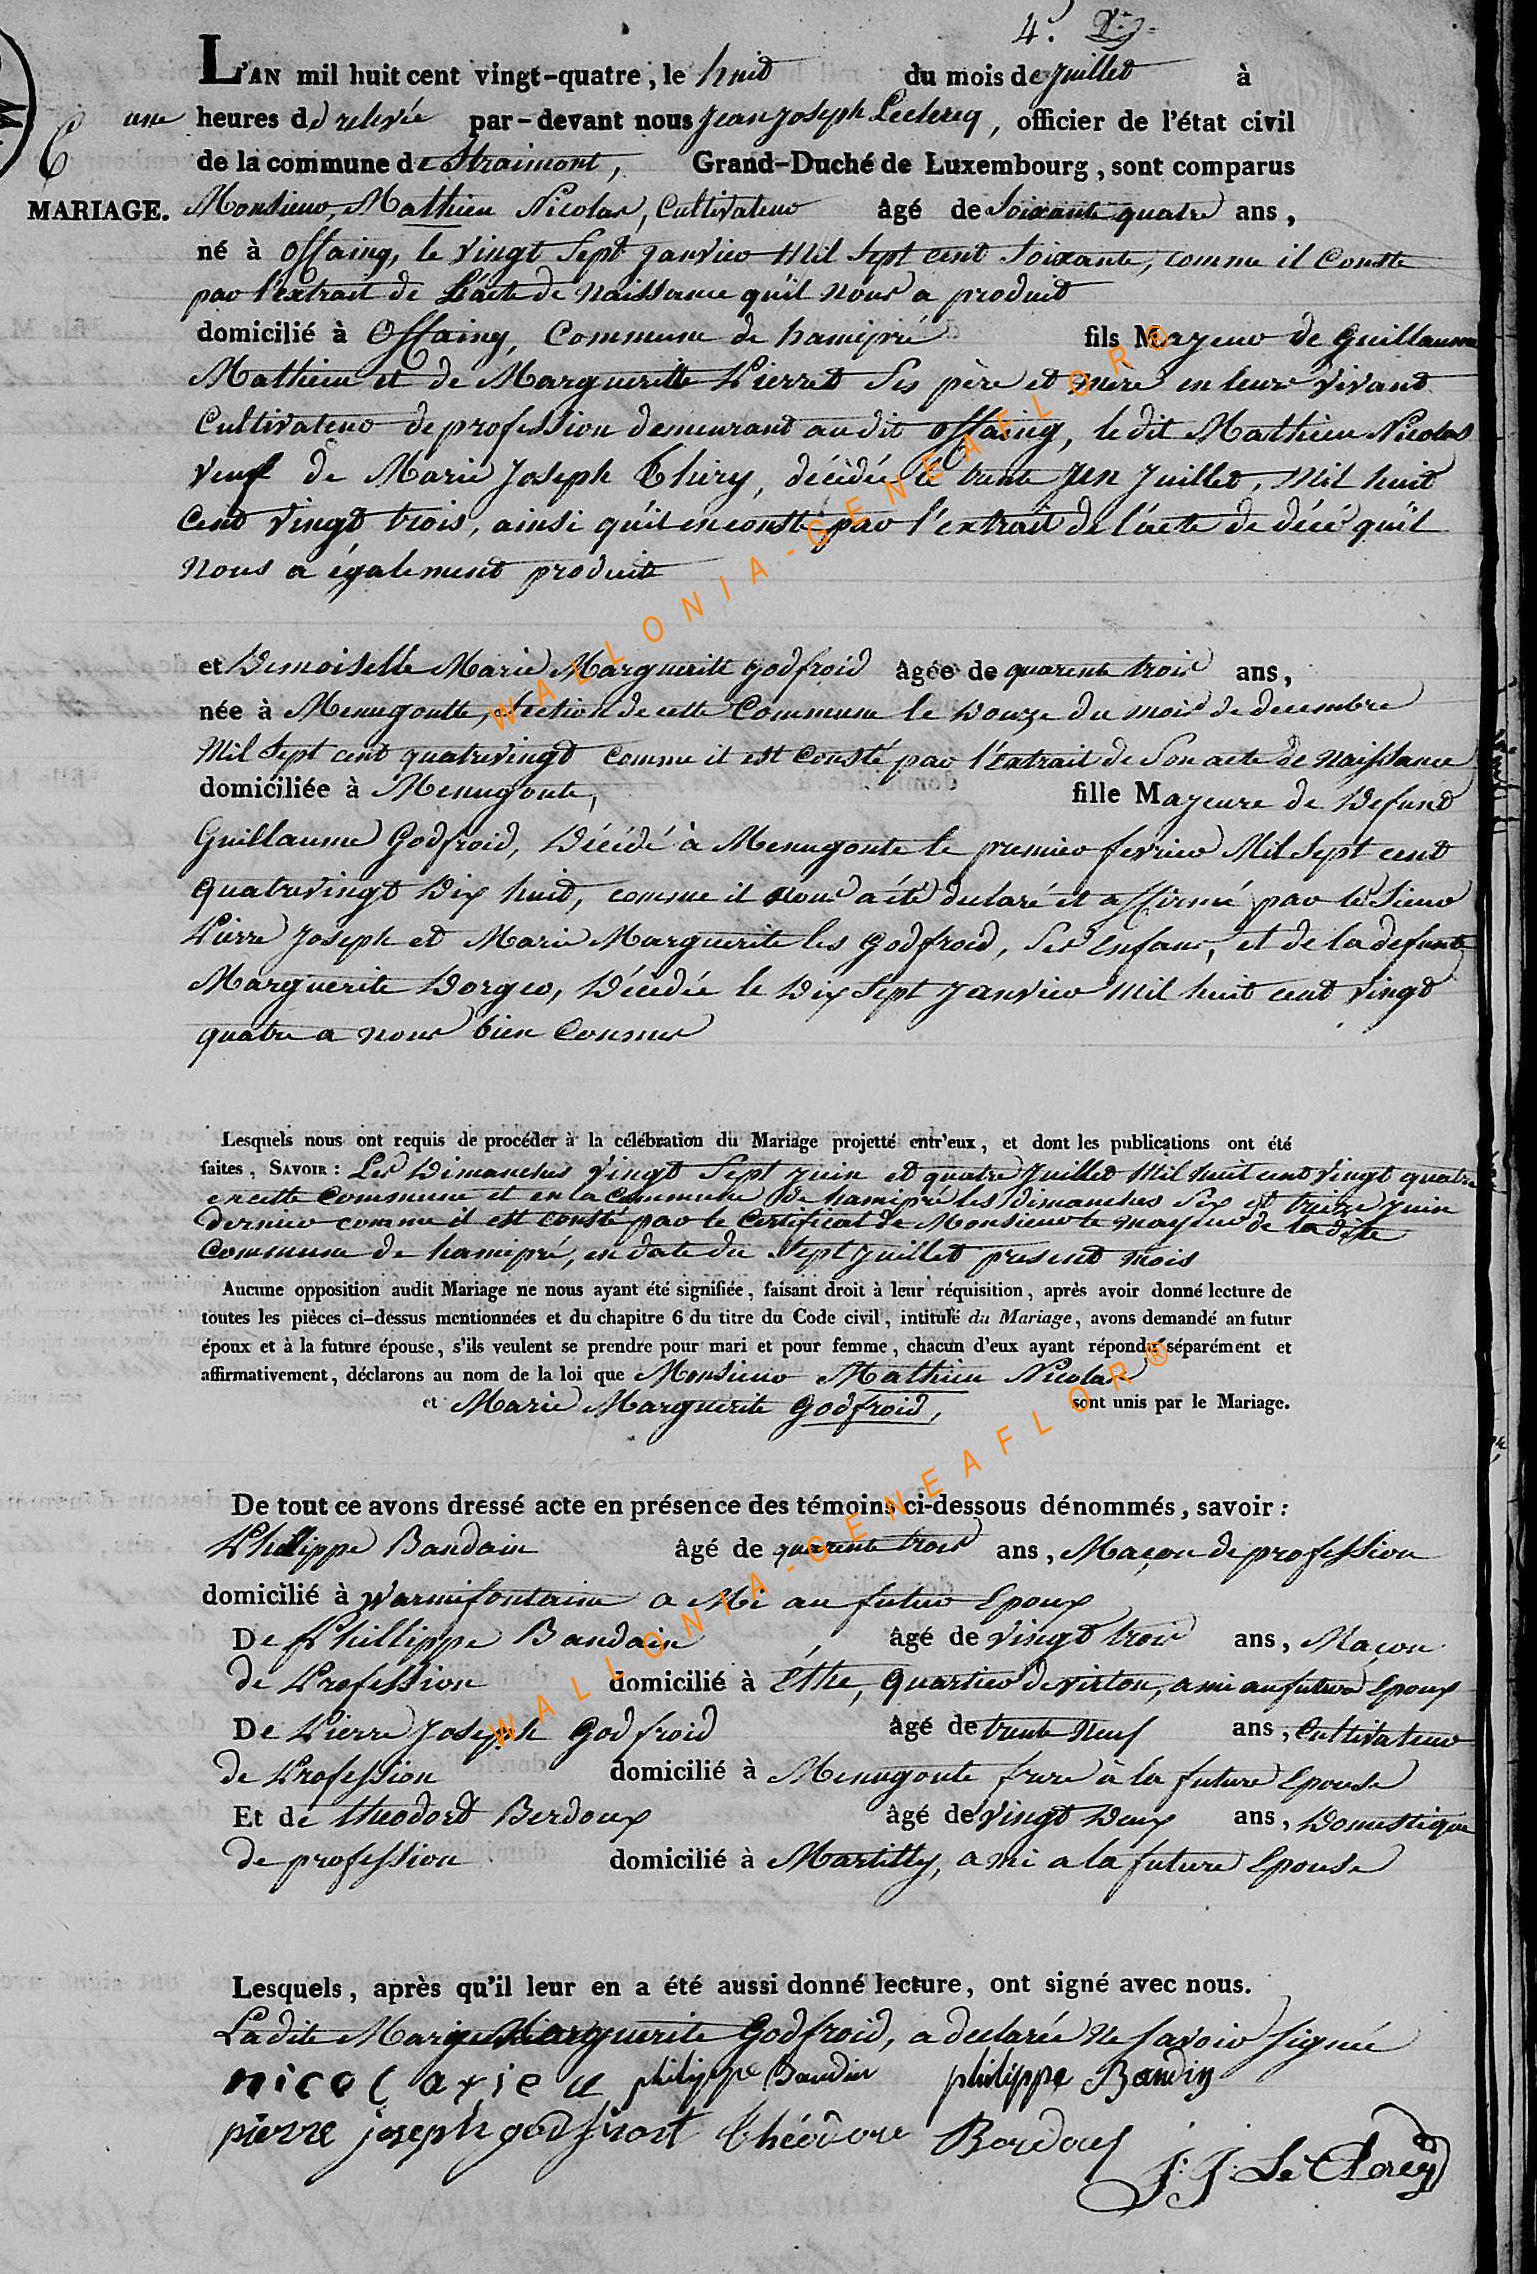 4.
L'AN mil huit cent vingt-quatre, le huit du mois de juillet à
une heures de relevée par-devant nous Jean Joseph Leclercq, officier de l'état civil
de la commune de Straimont, Grand-Duché de Luxembourg, sont comparus
MARIAGE. Monsieur, Mathieu Nicolas, Cultivateur âgé de Soixante quatre ans,
né à Offaing, le vingt Sept Janvier Mil Sept cent Soixante, comme il Conste
par l'extrait de L'acte de Naissance qu'il nous a produit
domicilié à Offaing, Commune de hamipré fils Mayeur de Guillaume
Mathieu et de Margueritte Pierret Ses père et mere en leur vivant
Cultivateur de profession demeurant au dit Offaing, le dit Mathieu Nicolas
veuf de Marie Joseph Thiry, décédée le trente Juillet, Mil huit
Cent vingt trois, ainsi qu'il en conste par l'extrait de l'acte de décé qu'il
Nous a également produite
et Demoiselle Marie Marguerite Godfroid âgée de quarente trois ans,
née à Menugoutte, Section de cette Commune le Douze du mois de decembre
Mil Sept cent quatrevingt comme il est Consté par l'Extrait de Son acte de Naissance
domiciliée à Menugoute, fille Mayeure de Defunt
Guillaume Godfroid, Décédé à Menugoute le premier fevrier Mil Sept cent
quatrevingt Dix huit, comme il nous a été declaré et affirmé par le Sieur
Pierre Joseph et Marie Marguerite les Godfroid, Ses Enfans, et de la defunte
Marguerite Dorgeo, Décédée le Dix Sept Janvier Mil huit cent vingt
quatre a nous bien Connus
Lesquels nous ont requis de procéder à la célébration du Mariage projetté entr'eux, et dont les publications ont été
faites, SAVOIR : Les Dimanches vingt Sept Juin et quatre Juillet Mil huit cent vingt quatre
en cette Commune et en la Commune de hamipré les Dimanches Six et treize Juin
Dernier comme il est consté par le Certificat de Monsieur le mayeur de la dite
Commune de hamipré, en date du Sept Juillet present mois
Aucune opposition audit Mariage ne nous ayant été signifiée, faisant droit à leur réquisition, après avoir donné lecture de
toutes les pièces ci-dessus mentionnées et du chapitre 6 du titre du Code civil, intitulé du Mariage, avons demandé au futur
époux et à la future épouse, s'ils veulent se prendre pour mari et pour femme, chacun d'eux ayant répondu séparément et
affirmativement, déclarons au nom de la loi que Monsieur Mathieu Nicolas
et Marie Marguerite Godfroid, sont unis par le Mariage.
De tout ce avons dressé acte en présence des témoins ci-dessous dénommés, savoir :
Philippe Baudain âgé de quarente trois ans, Maçon de profession
domicilié à Warmifontaine a Mi au futur Epoux
De Phillippe Baudain âgé de vingt trois ans, Maçon
de Profession domicilié à Ethe, Quartier de virton, ami au futur Epoux
De Pierre Joseph Godfroid âgé de trente Neuf ans, Cultivateur
de Profession domicilié à Menugoute frere a la future Epouse
Et de theodore Berdoux âgé de vingt Deux ans, Domestique
de profession domicilié à Martilly, ami a la future Epouse
Lesquels, après qu'il leur en a été aussi donné lecture, ont signé avec nous.
Ladite Marie Marguerite Godfroid, a declarée Ne Savoir Signée
philippe Baudin philippe Baudin
pierre joseph godfroit théodore Berdoux
J: J: Le Clercq
WALLONIA-GENEAFLOR®
WALLONIA-GENEAFLOR®